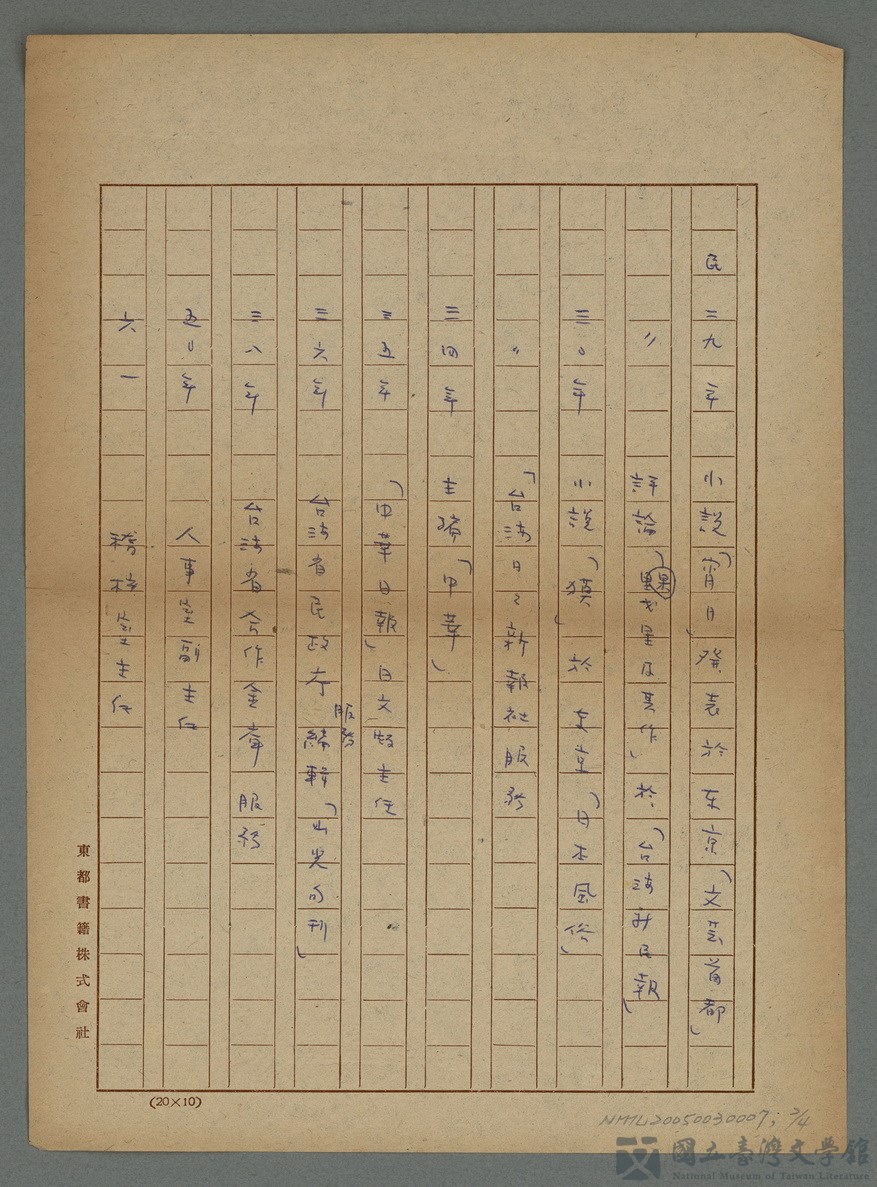 民二九年　小說「宵月」発表於东京「文芸首都」
〃　評論「果戈里及其作」於「台湾新民報」
三〇年　小說「獏」於东京「日本風俗」
〃　「台湾日々新報社服務
三四年　主編「中華」
三五年　「中華日報」日文版主任
三六年　台湾省民政庁服務編輯「山光旬刊」
三八年　台湾省合作金庫服務
五〇年　人事室副主任
六一　稽核室主任
東都書籍株式會社
(20×10)
NMTL20050030007; 2/4
國立臺灣文學館
National Museum of Taiwan Literature